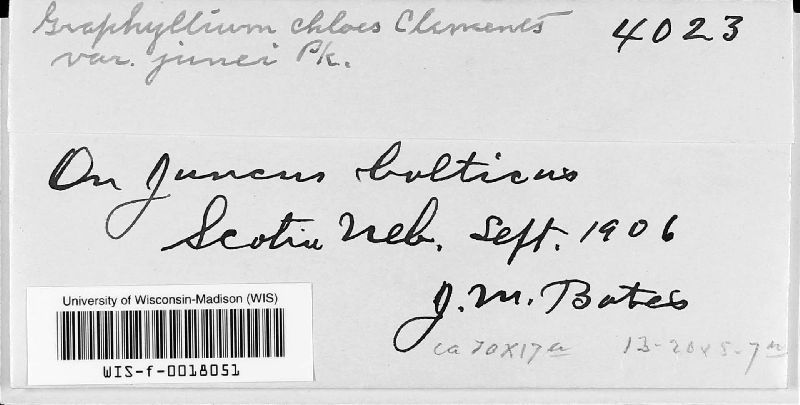 Graphyllium chloes Clements 4023
var. junci Pk.
On Juncus balticus
Scotia Neb. Sept. 1906
J. M. Bates
University of Wisconsin-Madison (WIS)
WIS-f-0018051
ca 70X17 u 13-20x5-7 u